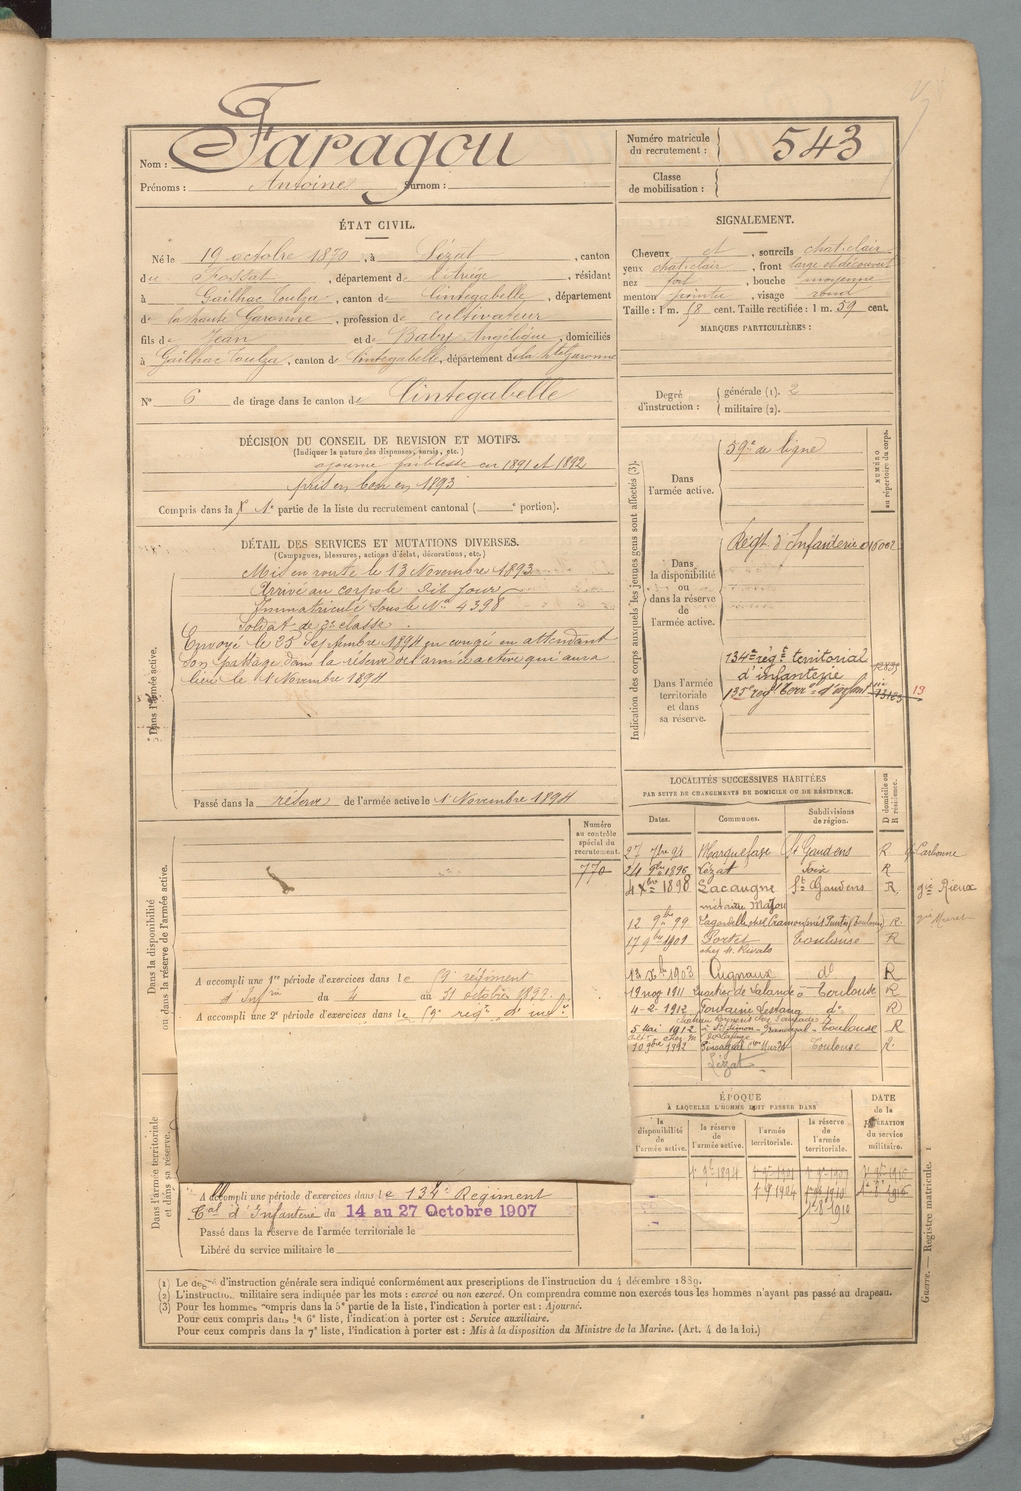 Nom : Faragou
Prénoms : Antoine Surnom :
Numéro matricule du recrutement : 543
Classe de mobilisation :
ÉTAT CIVIL.
Né le 19 octobre 1870, à Lézat, canton
du Fossat, département de l'Ariège, résidant
à Gailhac Toulza, canton de Cintegabelle, département
de la haute Garonne, profession de cultivateur
fils de Jean et de Baby Angélique, domiciliés
à Gailhac Toulza, canton de Cintegabelle, département de la Hte Garonne
N° 6 de tirage dans le canton de Cintegabelle
SIGNALEMENT.
Cheveux et, sourcils chat. clair
yeux chat. clair, front large et découvert
nez fort, bouche moyenne
menton pointu, visage rond
Taille : 1 m. 58 cent. Taille rectifiée : 1 m. 59 cent.
MARQUES PARTICULIÈRES :
Degré d'instruction : générale (1). 2
militaire (2).
DÉCISION DU CONSEIL DE REVISION ET MOTIFS.
(Indiquer la nature des dispenses, sursis, etc.)
ajourné faiblesse en 1891 et 1892
pris en bon en 1893
Compris dans la 1e partie de la liste du recrutement cantonal ( e portion).
DÉTAIL DES SERVICES ET MUTATIONS DIVERSES.
(Campagnes, blessures, actions d'éclat, décorations, etc.)
Dans l'armée active.
Mis en route le 13 Novembre 1893
Arrivé au corps le dit Jour
Immatriculé sous le No 4398
Soldat de 2e classe.
Envoyé le 25 Septembre 1894 en congé en attendant
son passage dans la réserve de l'armée active qui aura
lieu le 1 Novembre 1894
Passé dans la réserve de l'armée active le 1 Novembre 1894
Indication des corps auxquels les jeunes gens sont affectés (3).
NUMÉRO au répertoire du corps.
Dans l'armée active.
59e de ligne
Dans la disponibilité ou dans la réserve de l'armée active.
Régt. d'Infanterie
Dans l'armée territoriale et dans sa réserve.
134e régt territorial
d'infanterie
135e reg Terr d'infant
13
LOCALITÉS SUCCESSIVES HABITÉES
PAR SUITE DE CHANGEMENTS DE DOMICILE OU DE RÉSIDENCE.
Dates. Communes. Subdivisions de région. D domicile ou R résidence.
27 7bre 94 Marquefave St Gaudens R Carbonne
24 9bre 1896 Lézat Foix R
4 Xbre 1898 Lacaugne St Gaudens R gie Rieux
métairie
12 9bre 99 Lagardelle R.
17 9bre 1901 Portet Toulouse R
chez M.
13 Xb 1903 Cugnaux do R
19 nov 1911 Quartier de Lalande Toulouse R
4-2-1912 Fontaine Lestang do R
5 Mai 1912 St Simon Toulouse R
10 9bre 1912 Toulouse R.
Lézat
Dans la disponibilité ou dans la réserve de l'armée active.
Numéro au contrôle spécial du recrutement.
770
A accompli une 1re période d'exercices dans le 59e régiment
d'Infrie du 4 au 31 octobre 1897
A accompli une 2e période d'exercices dans le 59e régt d'infie
Dans l'armée territoriale et dans sa réserve.
A accompli une période d'exercices dans le 134e Régiment
Cal d'Infanterie du 14 au 27 Octobre 1907
Passé dans la réserve de l'armée territoriale le
Libéré du service militaire le
ÉPOQUE
À LAQUELLE L'HOMME DOIT PASSER DANS
la disponibilité de l'armée active. la réserve de l'armée active. l'armée territoriale. la réserve de l'armée territoriale.
DATE de la LIBÉRATION du service militaire.
1 9b 1894
(1) Le degré d'instruction générale sera indiqué conformément aux prescriptions de l'instruction du 4 décembre 1889.
(2) L'instruction militaire sera indiquée par les mots : exercé ou non exercé. On comprendra comme non exercés tous les hommes n'ayant pas passé au drapeau.
(3) Pour les hommes compris dans la 5e partie de la liste, l'indication à porter est : Ajourné.
Pour ceux compris dans la 6e liste, l'indication à porter est : Service auxiliaire.
Pour ceux compris dans la 7e liste, l'indication à porter est : Mis à la disposition du Ministre de la Marine. (Art. 4 de la loi.)
Guerre. — Registre matricule. 1